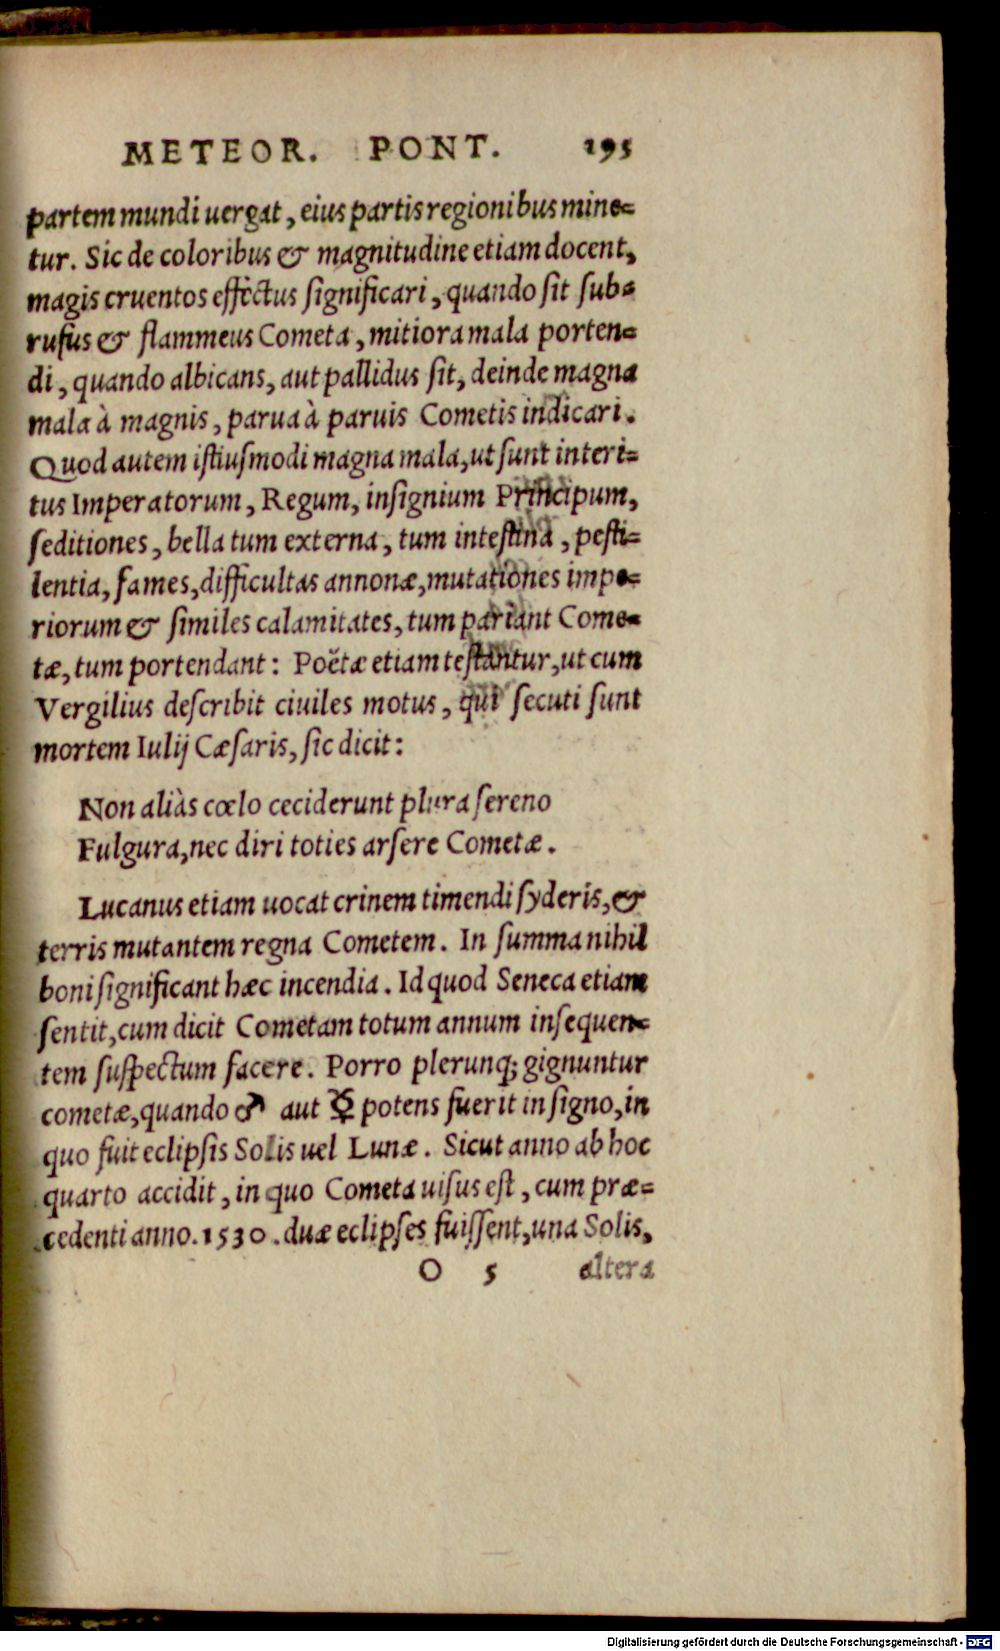 METEOR. PONT. 195
partem mundi uergat, eius partis regionibus mine=
tur. Sic de coloribus & magnitudine etiam docent,
magis cruentos effectus significari, quando sit sub=
rufus & flammeus Cometa, mitiora mala porten=
di, quando albicans, aut pallidus sit, deinde magna
mala à magnis, parua à paruis Cometis indicari.
Quod autem istiusmodi magna mala, ut sunt interi=
tus Imperatorum, Regum, insignium Principum,
seditiones, bella tum externa, tum intestina, pesti=
lentia, fames, difficultas annonæ, mutationes impe=
riorum & similes calamitates, tum pariant Come=
tæ, tum portendant: Poëtæ etiam testantur, ut cum
Vergilius describit ciuiles motus, qui secuti sunt
mortem Iulij Cæsaris, sic dicit:
Non aliàs cœlo ceciderunt plura sereno
Fulgura, nec diri toties arsere Cometæ.
Lucanus etiam uocat crinem timendi syderis, &
terris mutantem regna Cometem. In summa nihil
boni significant hæc incendia. Id quod Seneca etiam
sentit, cum dicit Cometam totum annum insequen=
tem suspectum facere. Porro plerunq; gignuntur
cometæ, quando ♂ aut ☿ potens fuerit in signo, in
quo fuit eclipsis Solis uel Lunæ. Sicut anno ab hoc
quarto accidit, in quo Cometa uisus est, cum præ=
cedenti anno. 1530. duæ eclipses fuissent, una Solis,
O 5 altera
Digitalisierung gefördert durch die Deutsche Forschungsgemeinschaft - DFG